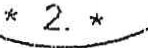 * 2. *